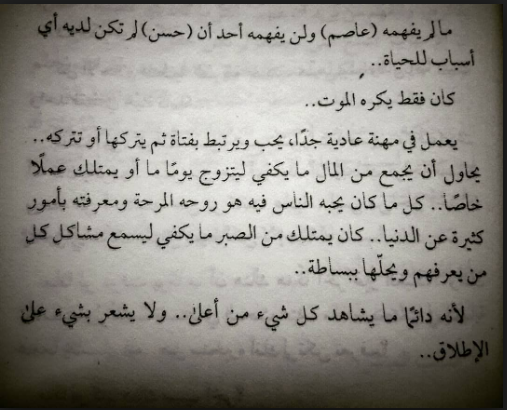 ما لم يفهمه (عاصم) ولن يفهمه أحد أن (حسن) لم تكن لديه أي
أسباب للحياة..
كان فقط يكره الموت..
يعمل في مهنة عادية جدًا، يحب ويرتبط بفتاة ثم يتركها أو تتركه..
يحاول أن يجمع من المال ما يكفي ليتزوج يومًا ما أو يمتلك عملًا
خاصًا.. كل ما كان يحبه الناس فيه هو روحه المرحة ومعرفته بأمور
كثيرة عن الدنيا.. كان يمتلك من الصبر ما يكفي ليسمع مشاكل كل
من يعرفهم ويحلّها ببساطة..
لأنه دائمًا ما يشاهد كل شيء من أعلىٰ.. ولا يشعر بشيء علىٰ
الإطلاق..